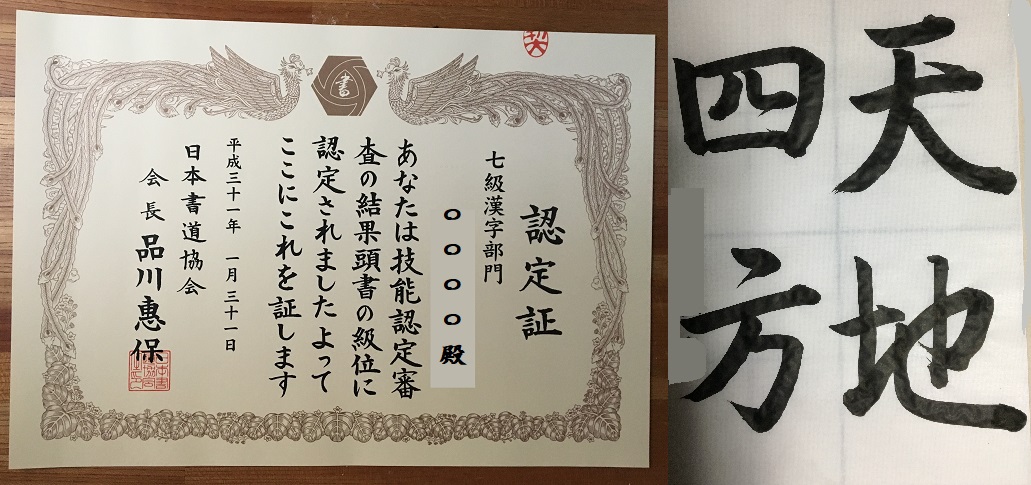 書
認定証
七級漢字部門
〇〇〇〇殿
あなたは技能認定審
査の結果頭書の級位に
認定されましたよって
ここにこれを証します
平成三十一年 一月三十一日
日本書道協会
会長 品川惠保
天地
四方